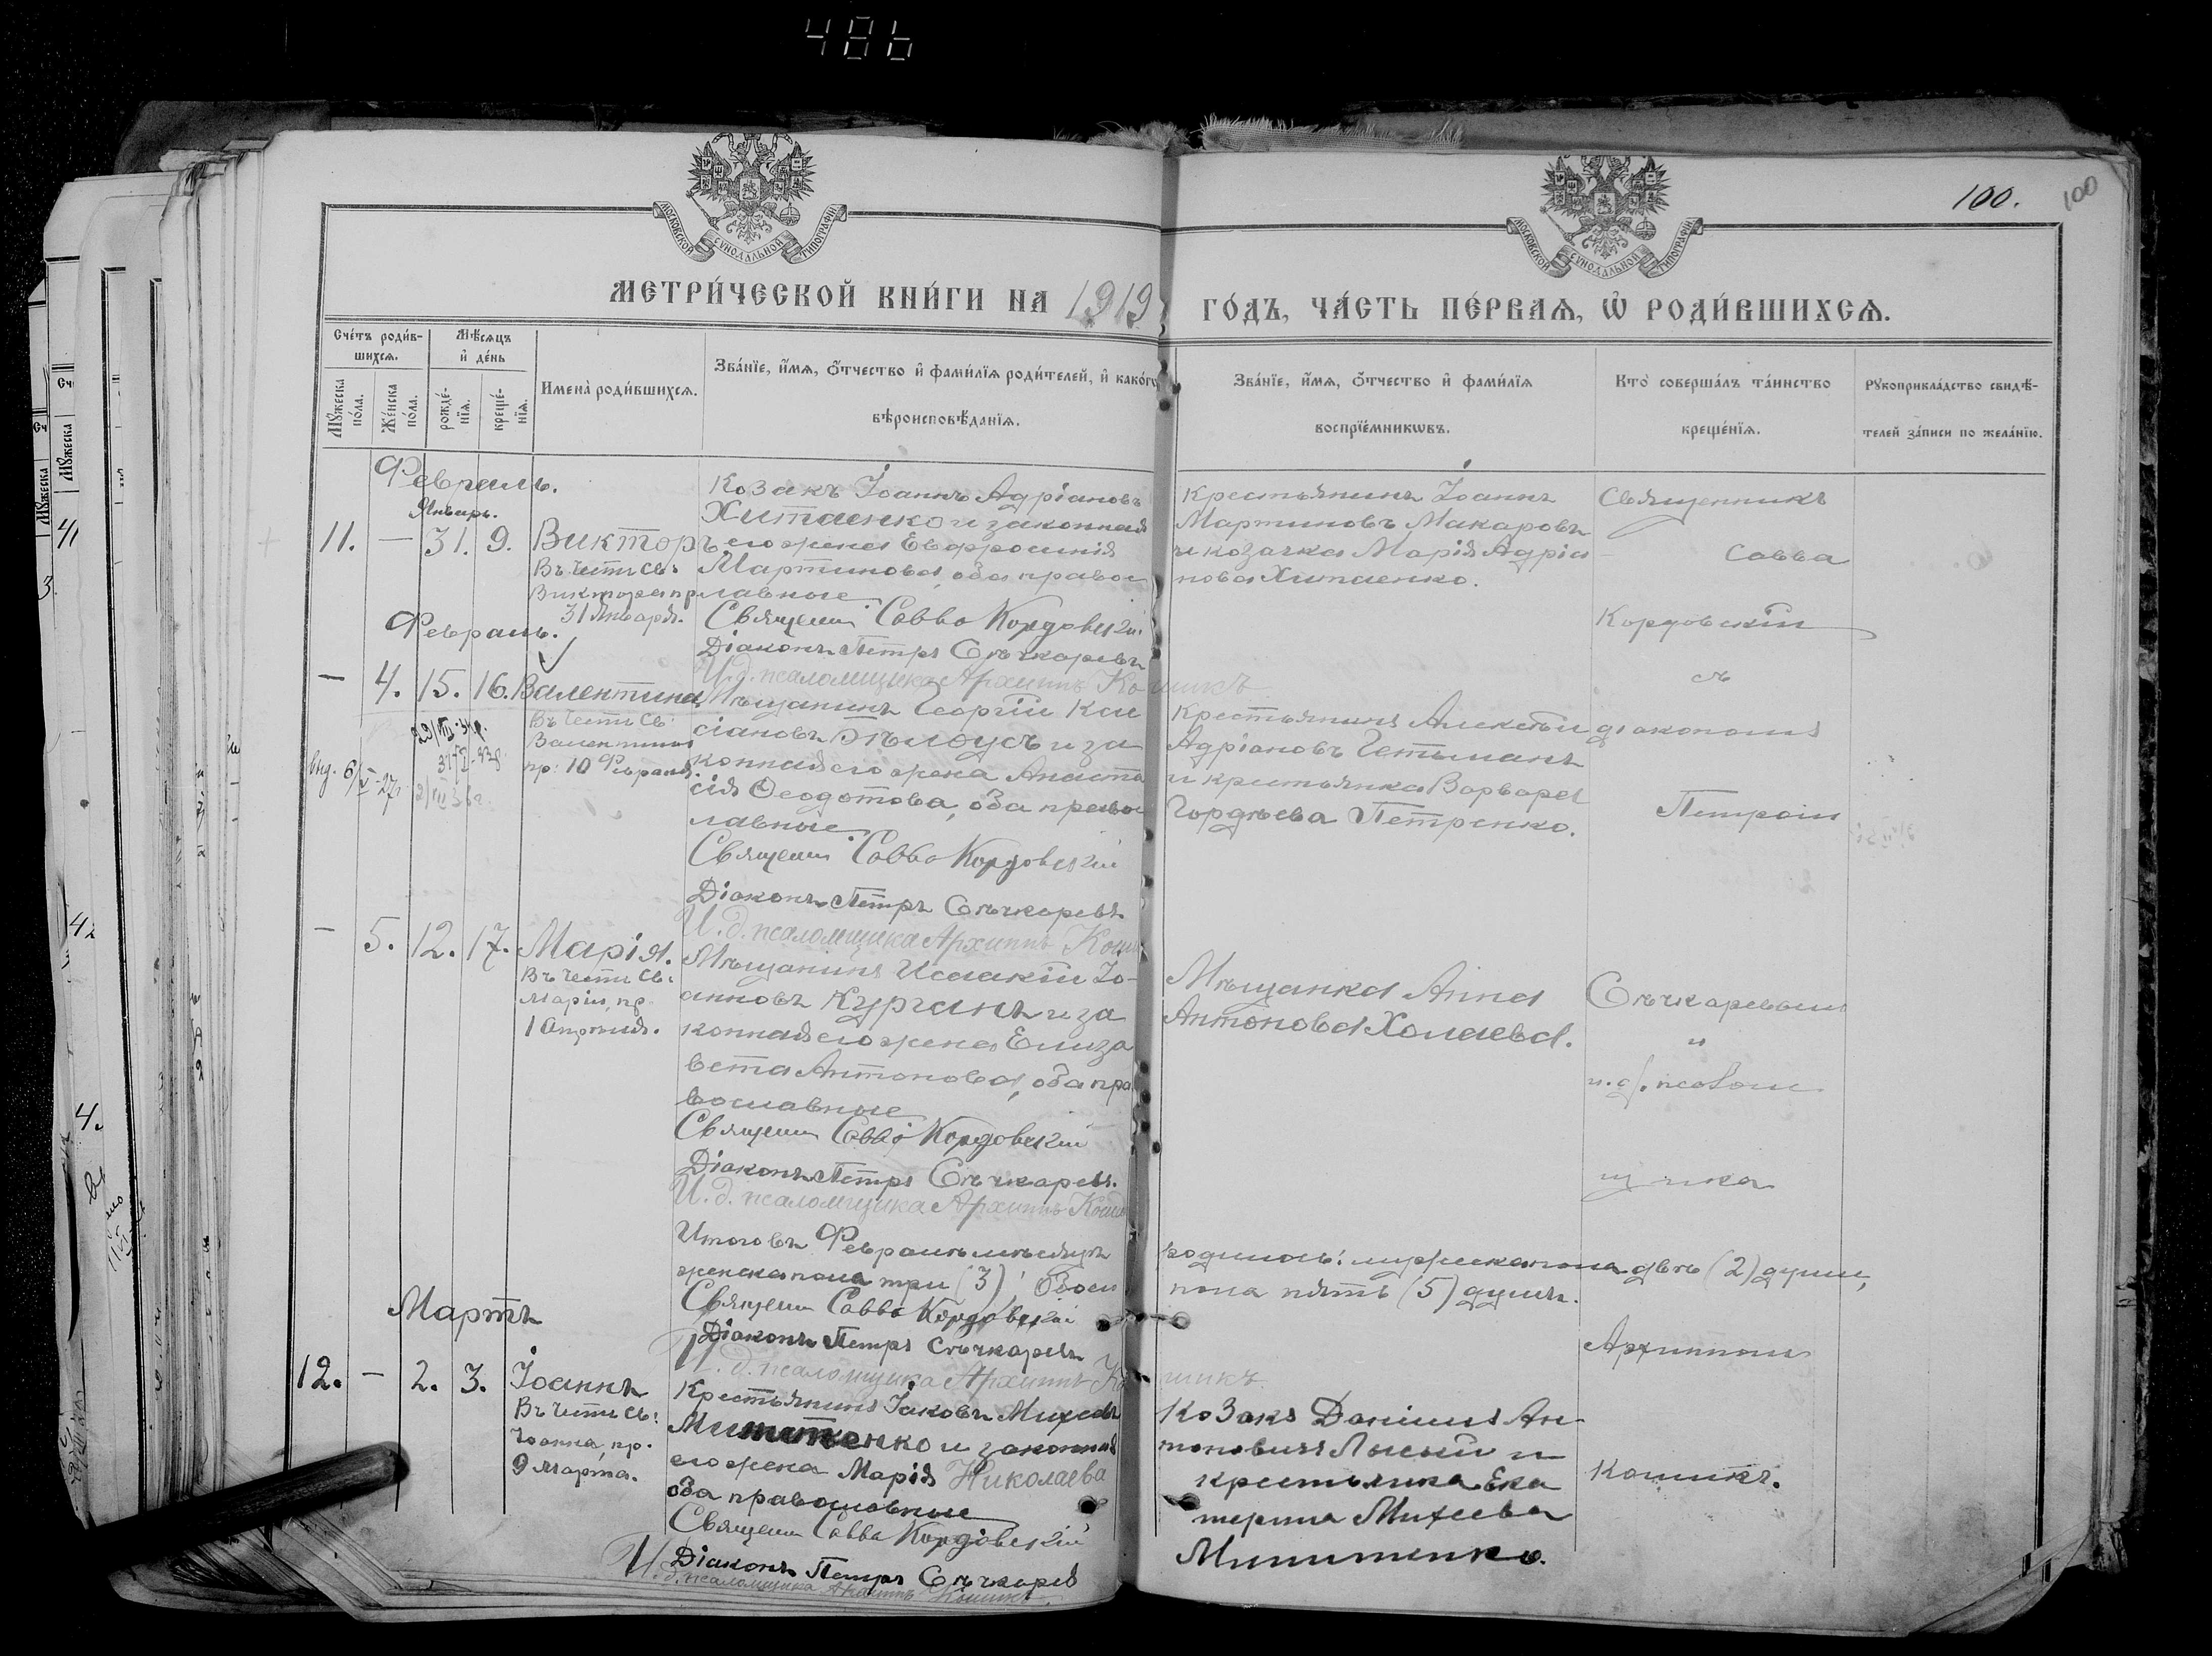 486
100.
100
МОСКОВСКОЙ СѴНОДАЛЬНОЙ ТИПОГРАФІИ
МОСКОВСКОЙ СѴНОДАЛЬНОЙ ТИПОГРАФІИ
МЕТРИ́ЧЕСКОЙ КНИ́ГИ НА 1919 ГО́ДЪ, ЧА́СТЬ ПЕ́РВАѦ, Ѡ РОДИ́ВШИХСѦ.
Сче́тъ роди́в-
шихсѧ.
Мꙋжеска по́ла.
Же́нска по́ла.
Мѣ́сѧцъ
и҆ де́нь
рожде́-
нїѧ.
креще́-
нїѧ.
Имена̀ роди́вшихсѧ.
Зва́нїе, и҆́мѧ, ѻ҆́тчество и҆ фами́лїѧ роди́телей, и҆ како́гѡ
вѣроисповѣ́данїѧ.
Зва́нїе, и҆́мѧ, ѻ҆́тчество и҆ фами́лїѧ
воспрїе́мникѡвъ.
Кто̀ соверша́лъ та́инство
креще́нїѧ.
Рꙋкоприкла́дство свидѣ́-
телей за́писи по жела́нїю.
Февраль.
Январь.
11. — 31. 9. Викторъ
Въ честь Св.
Виктора пр.
31 Января.
Козакъ Іоаннъ Адріановъ
Хитаенко и законная
его жена Евфросинія
Мартинова, оба право
лавные
Священ. Савва Кордовскій
Діаконъ Петръ Сѣчкаревъ
И. д. псаломщика Архиппъ Кошикъ
Крестьянинъ Іоаннъ
Мартиновъ Макаровъ
и козачка Марія Адріа
нова Хитаенко.
Священникъ
Савва
Кордовскій
съ
Февраль.
— 4. 15. 16. Валентина
Въ честь Св.
Валентины
пр. 10 Февраля.
Мѣщанинъ Георгій Кас
сіановъ Бѣлоусъ и за
конная его жена Анаста
сія Ѳеодотова, оба право
лавные
Священ. Савва Кордовскій
Діаконъ Петръ Сѣчкаревъ
И. д. псаломщика Архиппъ Коши
Крестьянинъ Алексѣй
Адріановъ Гетьманъ
и крестьянка Варвара
Гордѣева Петренко.
діакономъ
Петромъ
— 5. 12. 17. Марія.
Въ честь Св.
Маріи, пр.
1 Апрѣля.
Мѣщанинъ Исаакій Іо-
анновъ Курганъ и за
конная его жена Елиза
вета Антонова, оба пра
вославные
Священ. Савва Кордовскій
Діаконъ Петръ Сѣчкаревъ.
И. д. псаломщика Архиппъ Коши
Мѣщанка Анна
Антонова Холаева.
Сѣчкаревымъ
и
и. д. псалом
щика
Итого въ Февралѣ мѣсяцѣ родилось: мужска пола двѣ (2) души,
женска пола три (3), обоего пола пять (5) душъ.
Священ. Савва Кордовскій
Діаконъ Петръ Сѣчкаревъ
И. д. псаломщика Архиппъ Кошикъ
Архиппомъ
Мартъ
12. — 2. 3. Іоаннъ
Въ честь Св.
Іоанна, пр.
9 Марта.
Крестьянинъ Іаковъ Михеевъ
его жена Марія Николаева
оба православные
Священ. Савва Кордовскій
Діаконъ Петръ Сѣчкарев
И. д. псаломщика Архиппъ Кошикъ
Козакъ Даніилъ Ан
тоновичъ Лысый и
крестьянка Ека
терина Михеева
Кошикъ.